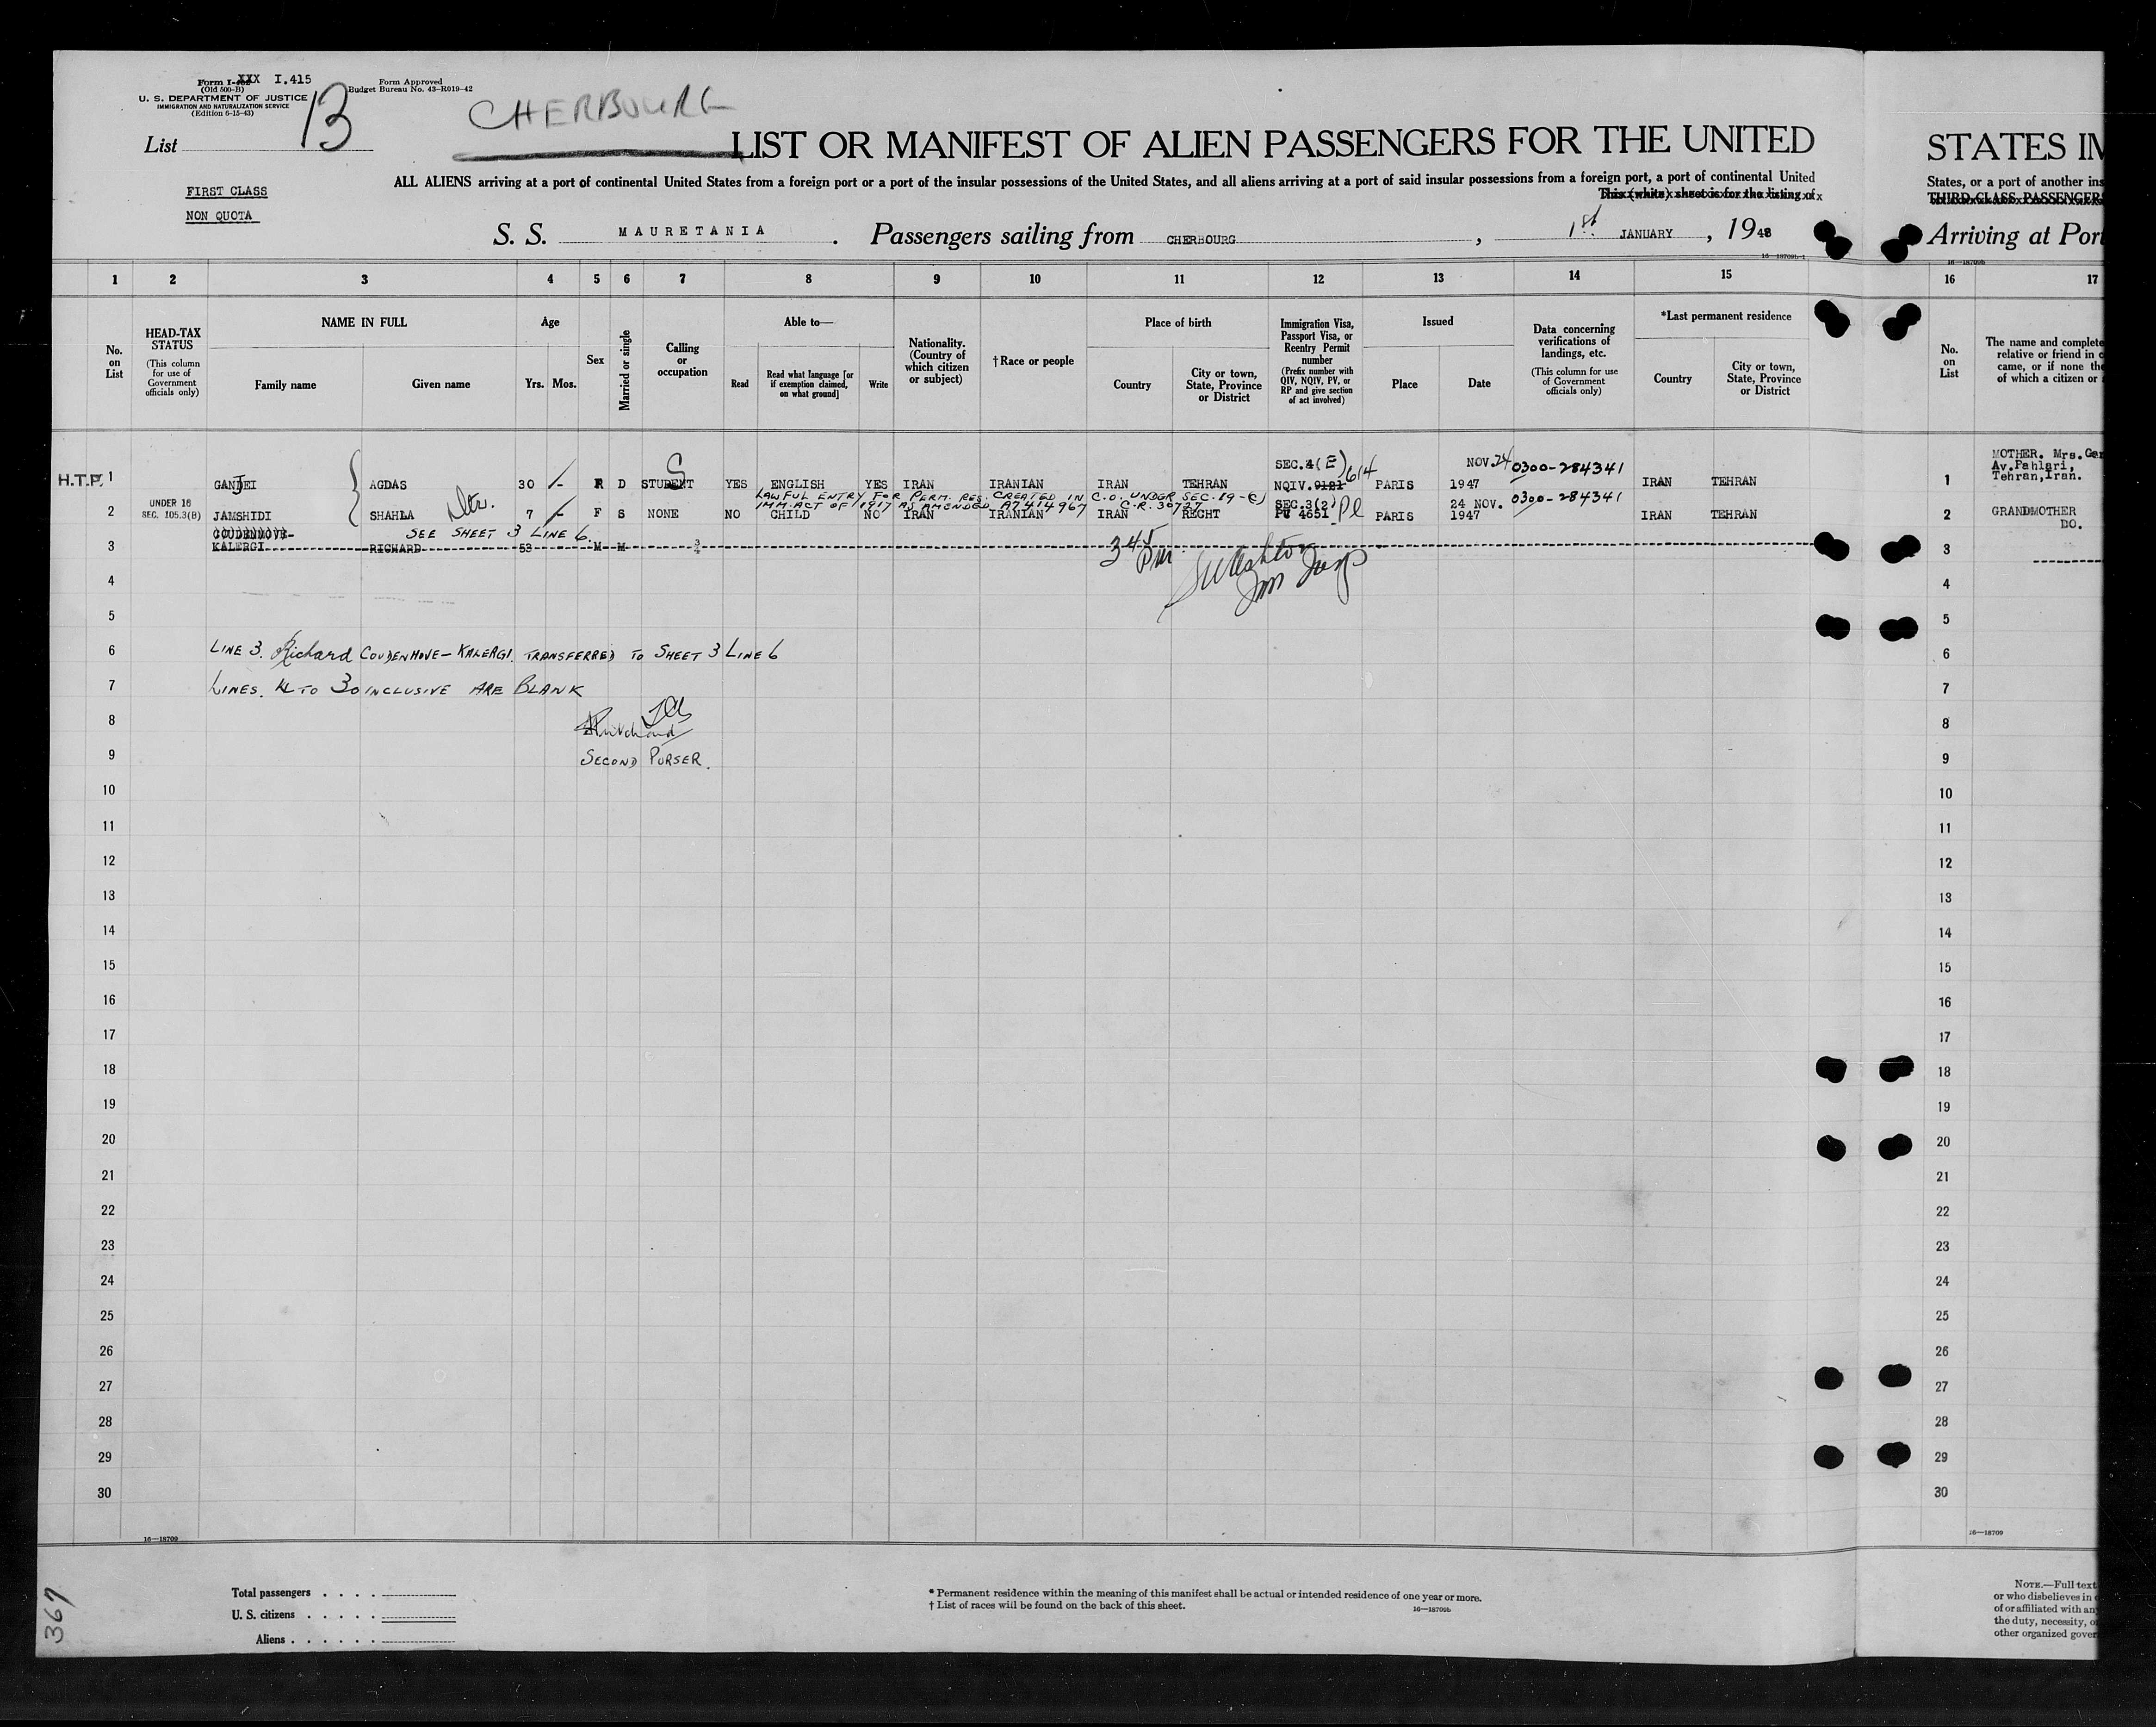 Form I-XXX I.415
(Old 500-B)
U. S. DEPARTMENT OF JUSTICE
IMMIGRATION AND NATURALIZATION SERVICE
(Edition 6-15-43)
Form Approved
Budget Bureau No. 43-R019-42
List 13
CHERBOURG
LIST OR MANIFEST OF ALIEN PASSENGERS FOR THE UNITED
STATES IM
FIRST CLASS
NON QUOTA
ALL ALIENS arriving at a port of continental United States from a foreign port or a port of the insular possessions of the United States, and all aliens arriving at a port of said insular possessions from a foreign port, a port of continental United
States, or a port of another ins
This (white) sheet is for the listing of
THIRD-CLASS PASSENGERS
S. S. MAURETANIA . Passengers sailing from CHERBOURG , 1st JANUARY , 1948
Arriving at Port
16—18709b-1
16—18709b
1 2 3 4 5 6 7 8 9 10 11 12 13 14 15 16 17
No. on List
HEAD-TAX STATUS
(This column for use of Government officials only)
NAME IN FULL
Family name Given name
Age
Yrs. Mos.
Sex
Married or single
Calling or occupation
Able to—
Read
Read what language [or if exemption claimed, on what ground]
Write
Nationality. (Country of which citizen or subject)
†Race or people
Place of birth
Country
City or town, State, Province or District
Immigration Visa, Passport Visa, or Reentry Permit number
(Prefix number with QIV, NQIV, PV, or RP and give section of act involved)
Issued
Place Date
Data concerning verifications of landings, etc.
(This column for use of Government officials only)
*Last permanent residence
Country
City or town, State, Province or District
No. on List
The name and complete
relative or friend in c
came, or if none the
of which a citizen or
H.T.P. 1 GANJEI AGDAS 30 F D STUDENT YES ENGLISH YES IRAN IRANIAN IRAN TEHRAN SEC.4(E) NQIV. 9121 614 PARIS NOV.24 1947 0300-284341 IRAN TEHRAN 1 MOTHER. Mrs.
Av.Pahlari,
Tehran,Iran.
LAWFUL ENTRY FOR PERM. RES. CREATED IN C.O. UNDER SEC. 19-(C)
IMM. ACT OF 1917 AS AMENDED. A7414967 C.R. 30727
2 UNDER 16 SEC. 105.3(B) JAMSHIDI SHAHLA Dtr. 7 F S NONE NO CHILD NO IRAN IRANIAN IRAN RECHT SEC.3(2) PV 4651 PARIS 24 NOV. 1947 0300-284341 IRAN TEHRAN 2 GRANDMOTHER
DO.
SEE SHEET 3 LINE 6.
3 COUDENHOVE-
KALERGI RICHARD 53 M M 3
3 45 PM
4 4
5 5
6 LINE 3. Richard COUDENHOVE-KALERGI. TRANSFERRED TO SHEET 3 LINE 6 6
7 LINES. 4 TO 30 INCLUSIVE ARE BLANK 7
8 8
9 SECOND PURSER. 9
10 10
11 11
12 12
13 13
14 14
15 15
16 16
17 17
18 18
19 19
20 20
21 21
22 22
23 23
24 24
25 25
26 26
27 27
28 28
29 29
30 30
16—18709
16—18709
Total passengers . . . .
U. S. citizens . . . . .
Aliens . . . . . .
* Permanent residence within the meaning of this manifest shall be actual or intended residence of one year or more.
† List of races will be found on the back of this sheet.
16—18709b
NOTE.—Full text
or who disbelieves in
of or affiliated with an
the duty, necessity, o
other organized gover
367